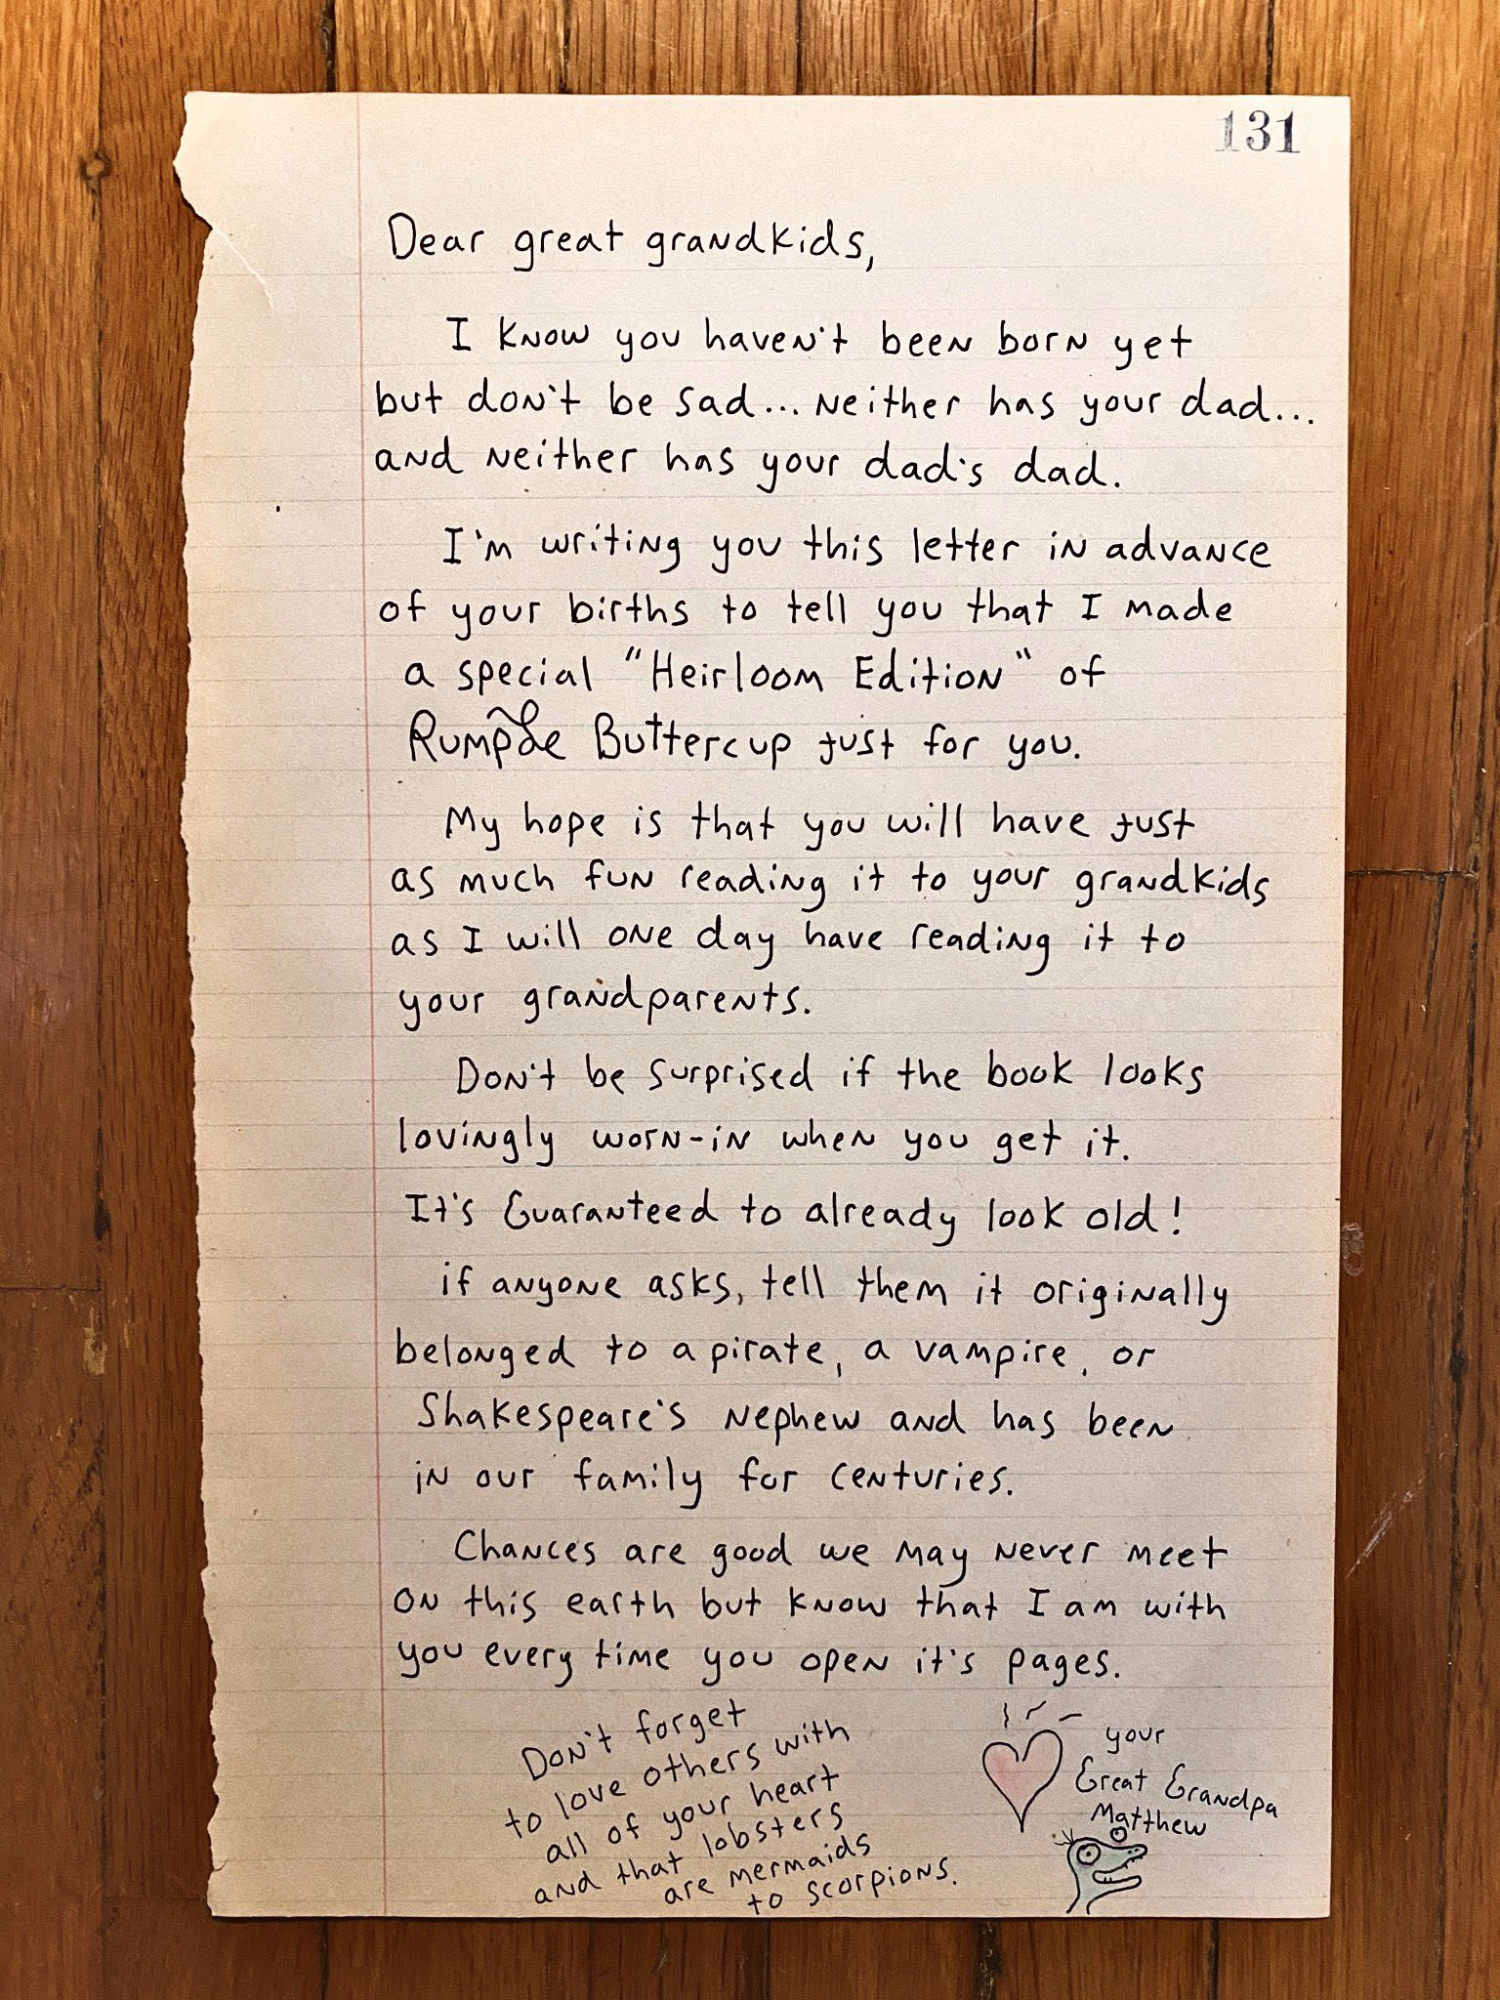 131
Dear great grandkids,
I know you haven't been born yet
but don't be sad... neither has your dad...
and neither has your dad's dad.
I'm writing you this letter in advance
of your births to tell you that I made
a special "Heirloom Edition" of
Rumple Buttercup just for you.
My hope is that you will have just
as much fun reading it to your grandkids
as I will one day have reading it to
your grandparents.
Don't be surprised if the book looks
lovingly worn-in when you get it.
It's Guaranteed to already look old!
if anyone asks, tell them it originally
belonged to a pirate, a vampire, or
Shakespeare's nephew and has been
in our family for centuries.
Chances are good we may never meet
on this earth but know that I am with
you every time you open it's pages.
Don't forget
to love others with
all of your heart
and that lobsters
are mermaids
to scorpions.
your
Great Grandpa
Matthew